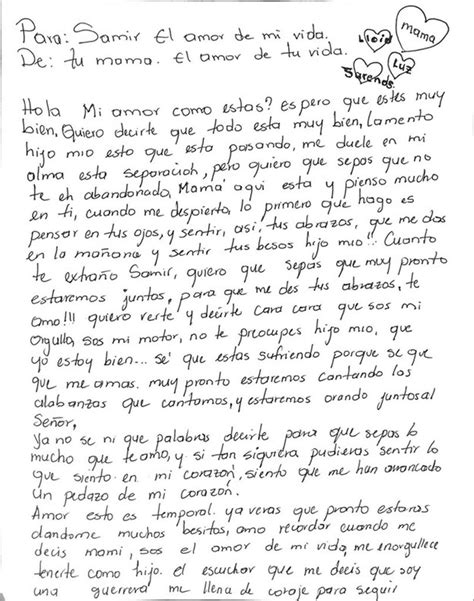 Para: Samir El amor de mi vida.
De: tu mama. El amor de tu vida.
mama
Luz
Hola Mi amor como estas? espero que estes muy
bien, Quiero decirte que todo esta muy bien, lamento
hijo mio esto que esta pasando, me duele en mi
alma esta separación, pero quiero que sepas que no
te eh abandonado, Mamá aqui esta y pienso mucho
en ti, cuando me despierto, lo primero que hago es
pensar en tus ojos, y sentir, asi, tus abrazos, que me das
en la mañana y sentir tus besos hijo mio!! Cuanto
te extraño Samir, quiero que sepas que muy pronto
estaremos juntos, para que me des tus abrazos, te
amo!!! quiero verte y decirte cara cara que sos mi
orgullo, sos mi motor, no te preocupes hijo mio, que
yo estoy bien... sé que estas sufriendo porque se que
que me amas. muy pronto estaremos cantando las
alabanzas que cantamos, y estaremos orando juntos al
Señor,
Ya no se ni que palabras decirte para que sepas lo
mucho que te amo, y si tan siquiera pudieras sentir lo
que siento en mi corazón, siento que me han arrancado
un pedazo de mi corazón.
Amor esto es temporal. ya veras que pronto estaras
dandome muchos besitos, amo recordar cuando me
decis mami, sos el amor de mi vida, me enorgullece
tenerte como hijo. el escuchar que me decis que soy
una guerrera me llena de coraje para seguir